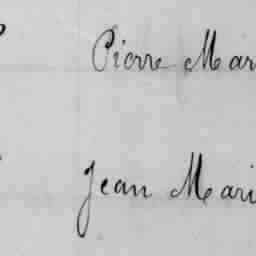 Pierre Mar
Jean Mari